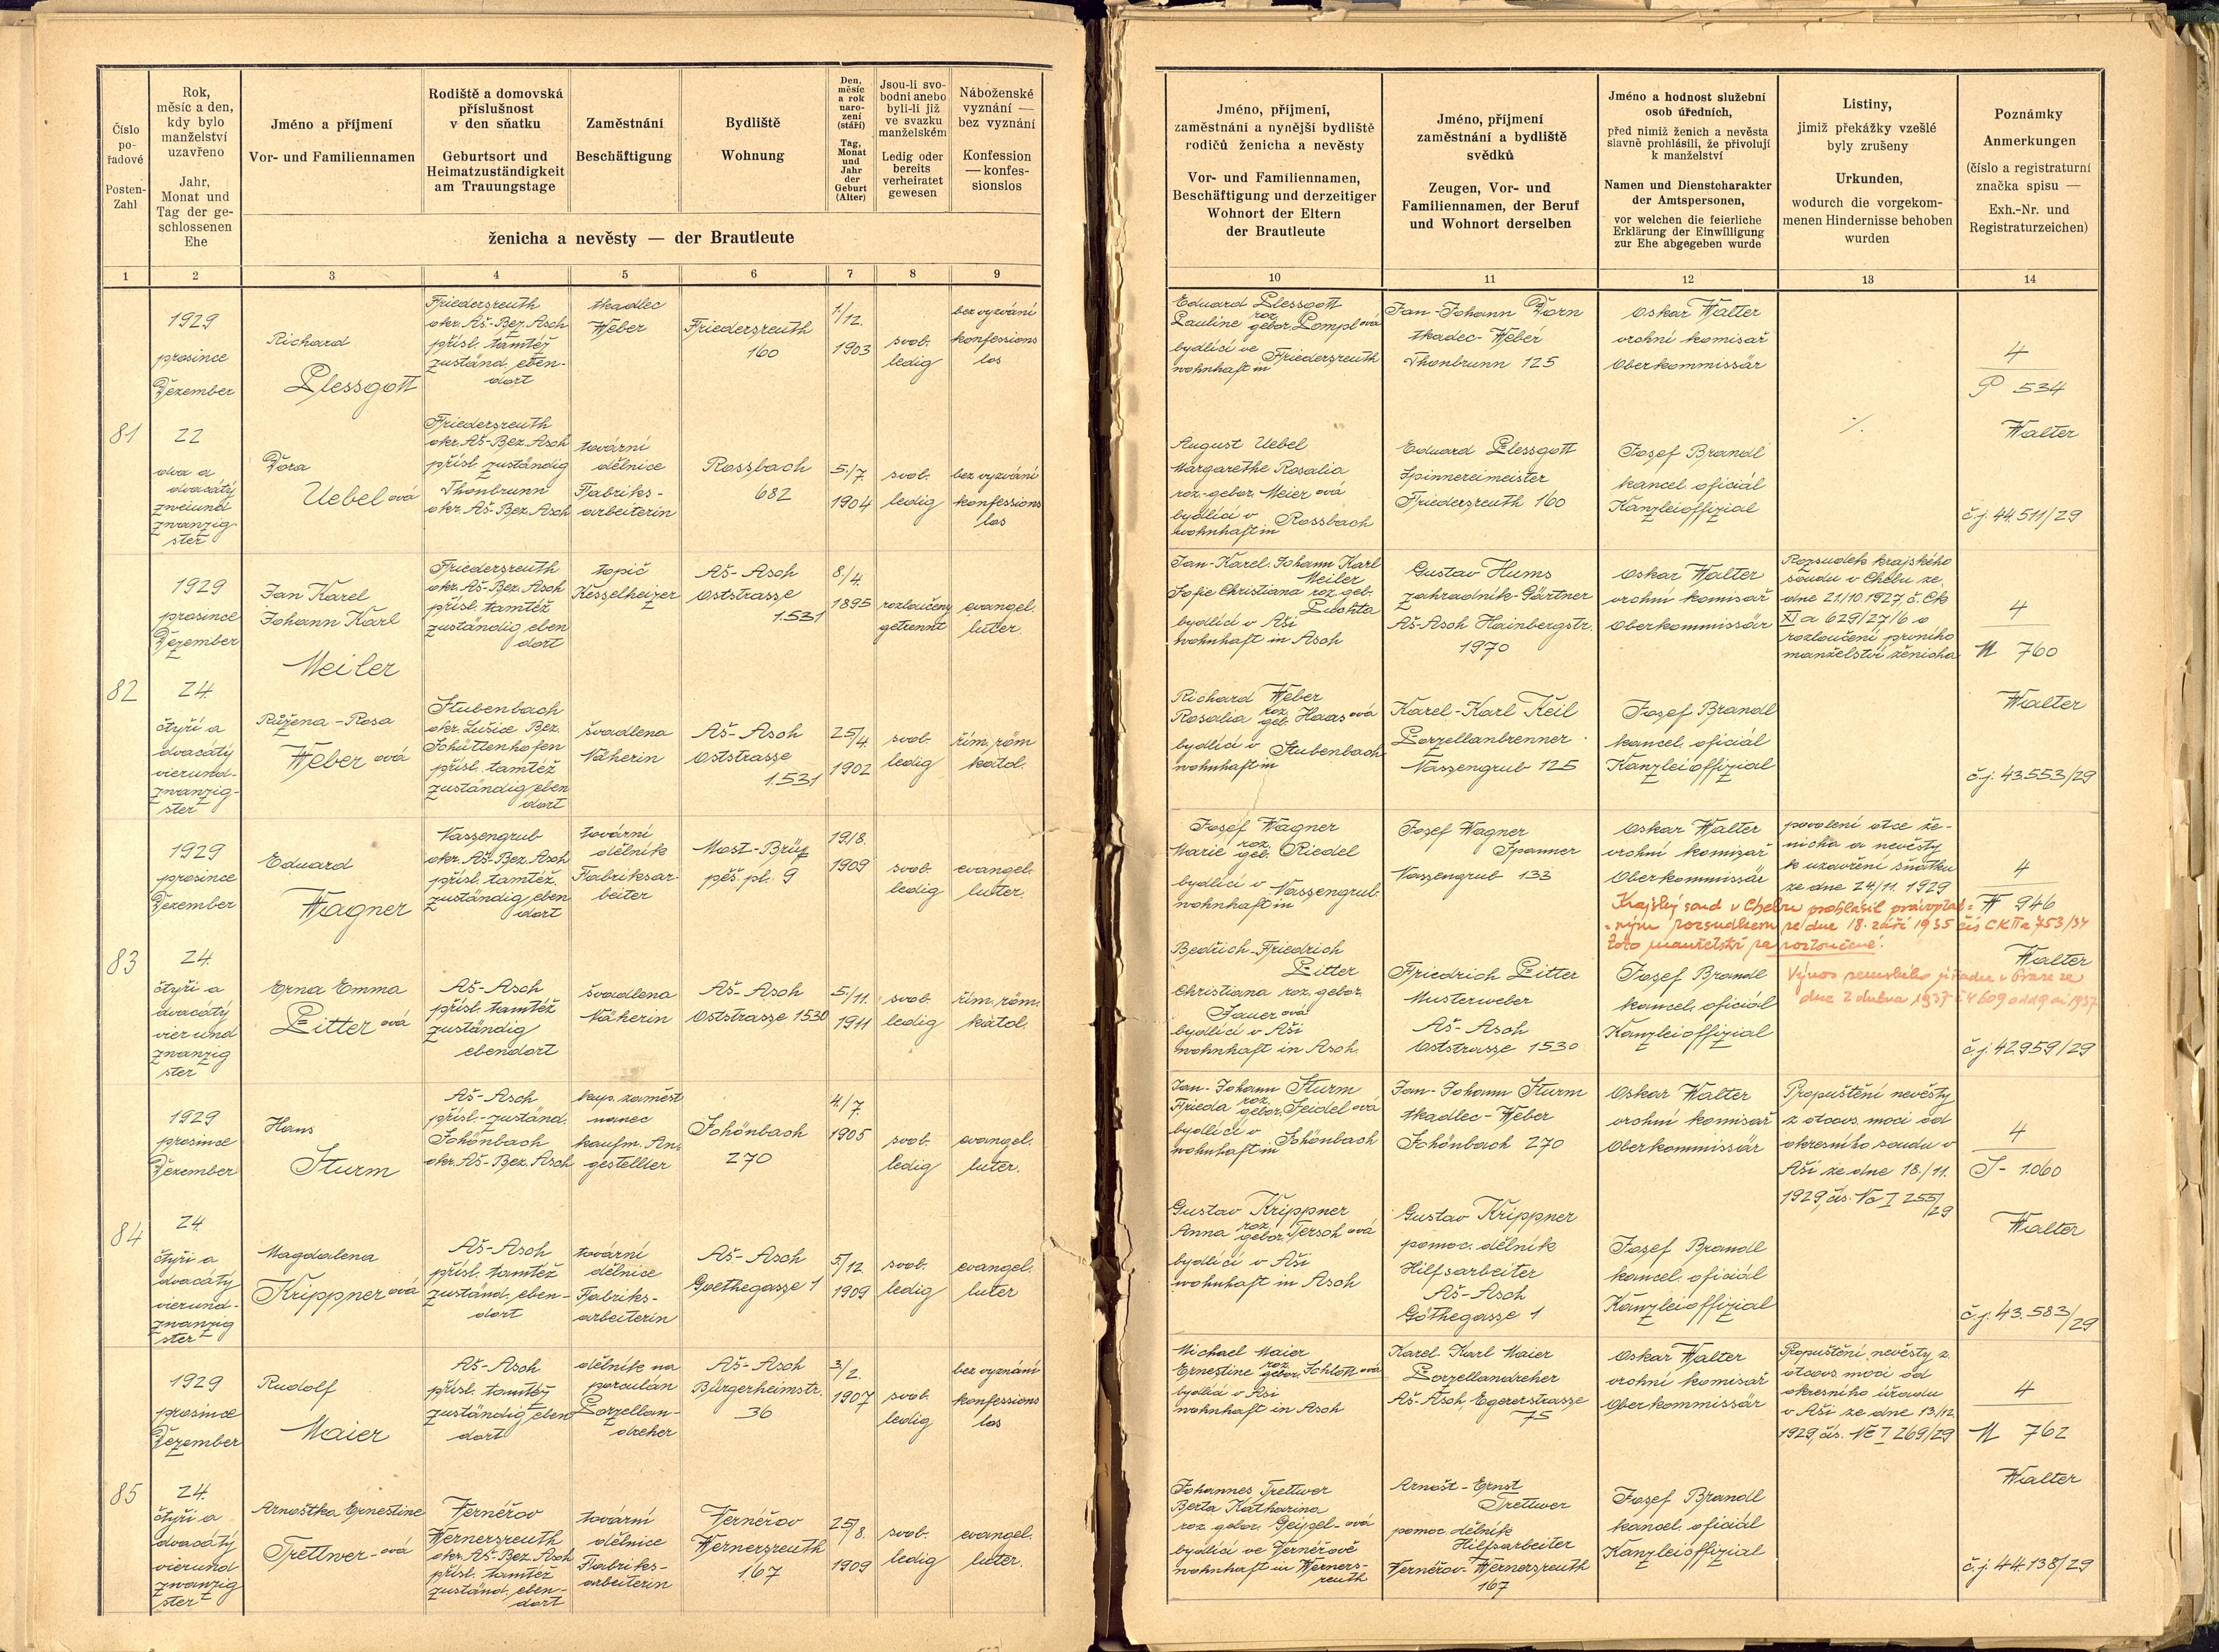 Číslo
po-
řadové
Posten-
Zahl
Rok,
měsíc a den,
kdy bylo
manželství
uzavřeno
Jahr,
Monat und
Tag der ge-
schlossenen
Ehe
Jméno a příjmení
Vor- und Familiennamen
Rodiště a domovská
příslušnost
v den sňatku
Geburtsort und
Heimatzuständigkeit
am Trauungstage
Zaměstnání
Beschäftigung
Bydliště
Wohnung
Den,
měsíc
a rok
naro-
zení
(stáří)
Tag,
Monat
und
Jahr
der
Geburt
(Alter)
Jsou-li svo-
bodni anebo
byli-li již
ve svazku
manželském
Ledig oder
bereits
verheiratet
gewesen
Náboženské
vyznání —
bez vyznání
Konfession
— konfes-
sionslos
ženicha a nevěsty — der Brautleute
1 2 3 4 5 6 7 8 9
81
1929
prosince
Dezember
22
dva a
dvacátý
zweiund
zwanzig-
ster
Richard
Plessgott
Friedersreuth
okr. Aš-Bez. Asch
přísl. tamtéž
zuständ. eben-
dort
tkadlec
Weber
Friedersreuth
160
1./
12.
1903
svob.
ledig
bez vyzvání
konfessions
los
Dora
Uebel ová
Friedersreuth
okr. Aš-Bez. Asch
přísl. zuständig
Thonbrunn
okr. Aš-Bez. Asch
tovární
dělnice
Fabriks-
arbeiterin
Rossbach
682
5./7.
1904
svob.
ledig
bez vyzvání
konfessions
los
82
1929
prosince
Dezember
24.
čtyři a
dvacátý
vierund-
zwanzig-
ster
Jan Karel
Johann Karl
Meiler
Friedersreuth
okr. Aš-Bez. Asch
přísl. tamtéž
zuständig eben
dort
topič
Kesselheizer
Aš-Asch
Oststrasse
1.531
8./4.
1895
rozloučený
getrennt
evangel.
luter.
Růžena-Rosa
Weber ová
Stubenbach
okr. Sušice Bez.
Schüttenhofen
přísl. tamtéž
zuständig eben
dort
švadlena
Näherin
Aš-Asch
Oststrasse
1.531
25/4
1902
svob.
ledig
řím. röm
katol.
83
1929
prosince
Dezember
24.
čtyři a
dvacátý
vierund
zwanzig
ster
Eduard
Wagner
Nassengrub
okr. Aš-Bez. Asch
přísl. tamtéž.
zuständig, eben
dort
tovární
dělník
Fabriksar-
beiter
Most-Brüx
pěš. pl. 9
19./8.
1909
svob.
ledig
evangel.
luter.
Erna Emma
Pitter ová
Aš-Asch
přísl. tamtéž
zuständig
ebendort
švadlena
Näherin
Aš-Asch
Oststrasse 1530
5/11.
1911
svob.
ledig
řím. röm.
katol.
84
1929
prosince
Dezember
24.
čtyři a
dvacátý
vierund-
zwanzig
ster
Hans
Sturm
Aš-Asch
přísl.-zuständ.
Schönbach
okr. Aš-Bez. Asch
kup. zaměst
nanec
kaufm. An-
gestellter
Schönbach
270
4./7.
1905
svob.
ledig
evangel.
luter.
Magdalena
Krippner ová
Aš-Asch
přísl. tamtéž
zuständ. eben-
dort
tovární
dělnice
Fabriks-
arbeiterin
Aš-Asch
Goethegasse 1
5/12
1909
svob.
ledig
evangel.
luter
85
1929
prosince
Dezember
24.
čtyři a
dvacátý
vierund
zwanzig
ster
Rudolf
Maier
Aš-Asch
přísl. tamtéž
zuständig eben
dort
dělník na
porculán
Porzellan-
dreher
Aš-Asch
Bürgerheimstr.
36
3/2.
1907
svob.
ledig
bez vyznání
konfessions
los
Arnoštka Ernestine
Trettwer-ová
Vernéřov
Wernersreuth
okr. Aš-Bez. Asch
přísl. tamtéž
zuständ. eben-
dort
tovární
dělnice
Fabriks-
arbeiterin
Vernéřov
Wernersreuth
167
25/8.
1909
svob.
ledig
evangel.
luter.
Jméno, příjmení,
zaměstnání a nynější bydliště
rodičů ženicha a nevěsty
Vor- und Familiennamen,
Beschäftigung und derzeitiger
Wohnort der Eltern
der Brautleute
Jméno, příjmení
zaměstnání a bydliště
svědků
Zeugen, Vor- und
Familiennamen, der Beruf
und Wohnort derselben
Jméno a hodnost služební
osob úředních,
před nimiž ženich a nevěsta
slavně prohlásili, že přivolují
k manželství
Namen und Dienstcharakter
der Amtspersonen,
vor welchen die feierliche
Erklärung der Einwilligung
zur Ehe abgegeben wurde
Listiny,
jimiž překážky vzešlé
byly zrušeny
Urkunden,
wodurch die vorgekom-
menen Hindernisse behoben
wurden
Poznámky
Anmerkungen
(číslo a registraturní
značka spisu —
Exh.-Nr. und
Registraturzeichen)
10 11 12 13 14
Eduard Plessgott
Pauline roz. gebor. Lompl ová
bydlící ve
wohnhaft in Friedersreuth
Jan-Johann Dorn
tkadec-Weber
Thonbrunn 125
Oskar Walter
vrchní komisař
Oberkommissär
4
P 534
August Uebel
Margarethe Rosalia
roz.-gebor. Meier ová
bydlící v
wohnhaft in Rossbach
Eduard Plessgott
Spinnereimeister
Friedersreuth 160
Josef Brandl
kancel. oficiál
Kanzleioffizial
·/.
Walter
č.j. 44.511/29
Jan-Karel. Johann Karl
Meiler
Sofie Christiana roz. geb.
Puchta
bydlící v Aši
wohnhaft in Asch
Gustav Hums
zahradník-Gärtner
Aš-Asch Hainbergstr.
1970
Oskar Walter
vrchní komisař
Oberkommissär
Rozsudek krajského
soudu v Chebu ze
dne 21./10.1927, č. Ck
XI a 629/27/6 o
rozloučení prvního
manželství ženicha
4
M 760
Richard Weber
Rosalia roz. geb. Haas ová
bydlící v
wohnhaft in Stubenbach
Karel-Karl Keil
Porzellanbrenner
Nassengrub 125
Josef Brandl
kancel. oficiál
Kanzleioffizial
Walter
č.j. 43.553/29
Josef Wagner
Marie roz. geb. Riedel
bydlící v
wohnhaft in Nassengrub.
Josef Wagner
Spanner
Nassengrub 133
Oskar Walter
vrchní komisař
Oberkommissär
povolení otce že-
nicha a nevěsty
k uzavření sňatku
ze dne 24./11. 1929
4
W 946
Krajský soud v Chebu prohlásil právoplat-
-ným rozsudkem ze dne 18. září 1935 čís CK II a 753/34
toto manželství za rozloučené.
Bedřich-Friedrich
Pitter
Christiana roz. gebor.
Sauer ová
bydlící v Aši
wohnhaft in Asch.
Friedrich Pitter
Musterweber
Aš-Asch
Oststrasse 1530
Josef Brandl
kancel. oficiál
Kanzleioffizial
Výnos zemského úřadu v Praze ze
dne 2 dubna 1937
Walter
č.j. 42959/29
Jan-Johann Sturm
Frieda roz. gebor. Seidel ová
bydlící v
wohnhaft in Schönbach
Jan-Johann Sturm
tkadlec-Weber
Schönbach 270
Oskar Walter
vrchní komisař
Oberkommissär
Propuštění nevěsty
z otcovs. moci od
okresního soudu v
Aši ze dne 18./11.
1929, čís. Na I 255/29
4
S- 1.060
Gustav Krippner
Anna roz. gebor. Tersch ová
bydlící v Aši
wohnhaft in Asch
Gustav Krippner
pomoc. dělník
Hilfsarbeiter
Aš-Asch
Göthegasse 1
Josef Brandl
kancel. oficiál
Kanzleioffizial
Walter
č.j. 43.583/29
Michael Maier
Ernestine roz. gebor. Schlott ová
bydlící v Aši
wohnhaft in Asch
Karel-Karl Maier
Porzellandreher
Aš-Asch, Egererstrasse
75
Oskar Walter
vrchní komisař
Oberkommissär
Propuštění nevěsty z
otcovs. moci od
okresního úřadu
v Aši ze dne 13./12.
1929, čís. Nc I 269/29
4
M 762
Johannes Trettwer
Berta Katharina
roz. gebor. Geipel-ová
bydlící ve Vernéřově
wohnhaft in Werners-
reuth
Arnošt-Ernst
Trettwer
pomoc. dělník
Hilfsarbeiter
Vernéřov-Wernersreuth
167
Josef Brandl
kancel. oficiál
Kanzleioffizial
Walter
č.j. 44.138/29